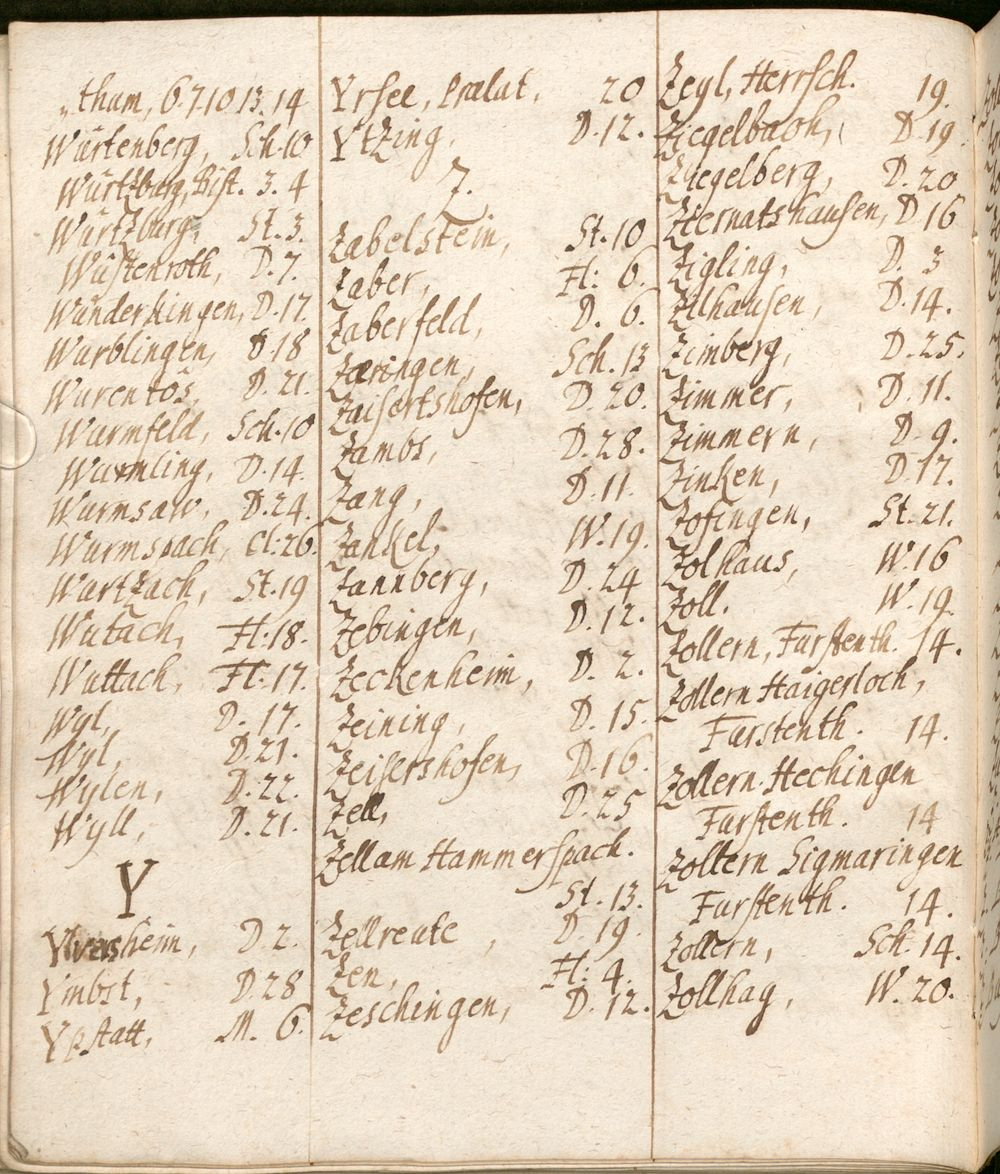 „tham, 6.7.10.13.14
Würtenberg, Sch.10
Würtzburg, Bist. 3.4
Würtzburg, St.3.
Wüstenroth, D.7.
Wunderkingen, D.17.
Wurblingen, D.18
Wurentos, D.21.
Wurmfeld, Sch.10
Wurmling, D.14.
Wurmsaw, D.24.
Wurmspach, Cl:26.
Wurtzach, St.19
Wutach, Fl:18.
Wuttach, Fl:17.
Wyl, D. 17.
Wyl, D.21.
Wylen, D.22.
Wyll, D.21.
Y
Yversheim, D.2.
Ymbst, D.28
Ypstatt, M. 6.
Yrsee, Prælat, 20
Ytzing, D.12.
Z.
Zabelstein, St.10
Zaber, Fl: 6.
Zaberfeld, D. 6.
Zæringen, Sch.13
Zaisertshofen, D.20.
Zambs, D.28.
Zang, D.11.
Zankel, W.19.
Zannberg, D.24
Zebingen, D.12.
Zeckenheim, D. 2.
Zeining, D.15.
Zeisershofen, D.16.
Zell, D.25
Zell am Hammerspach.
St.13.
Zellreute, D.19.
Zen, Fl: 4.
Zeschingen, D.12.
Zeyl, Herrsch. 19.
Ziegelbach, D.19.
Ziegelberg, D.20
Ziernatshausen, D.16
Zigling, D. 3
Zilhausen, D.14.
Zimberg, D.25.
Zimmer, D.11.
Zimmern, D.9.
Zinken, D.17.
Zofingen, St.21.
Zolhaus, W.16
Zoll. W.19.
Zollern, Furstenth. 14.
Zollern Haigerloch,
Furstenth. 14.
Zollern Hechingen
Furstenth. 14
Zollern Sigmaringen
Furstenth. 14.
Zollern, Sch.14.
Zollhag, W.20.